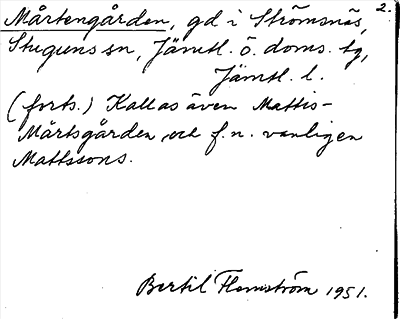 2.
Mårtengården, gd i Strömsnäs,
Stuguns sn, Jämtl. ö. doms. tg,
Jämtl. l.
(forts.) Kallas även Mattis-
Mårtsgården och f.n. vanligen
Mattssons.
Bertil Flemström 1951.